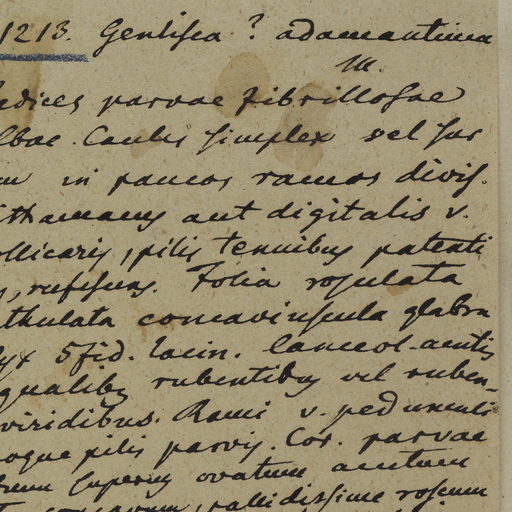 1213. Genlisea ? adamantina
m.
radices parvae fibrillosae
albae. Caulis simplex vel sur
in paucos ramos divis.
spithamaeus aut digitalis v.
pollicaris, pilis tenuibus patenti
rufescens. Folia rosulata
spathulata concaviuscula glabra
Calyx 5fid. lacin. lanceol. acutis
aequalibus rubentibus vel ruben-
viridibus. Rami v. pedunculi
quoque pilis parvis. Cor. parvae
labrum superius ovatum acutum
pallidissime roseum